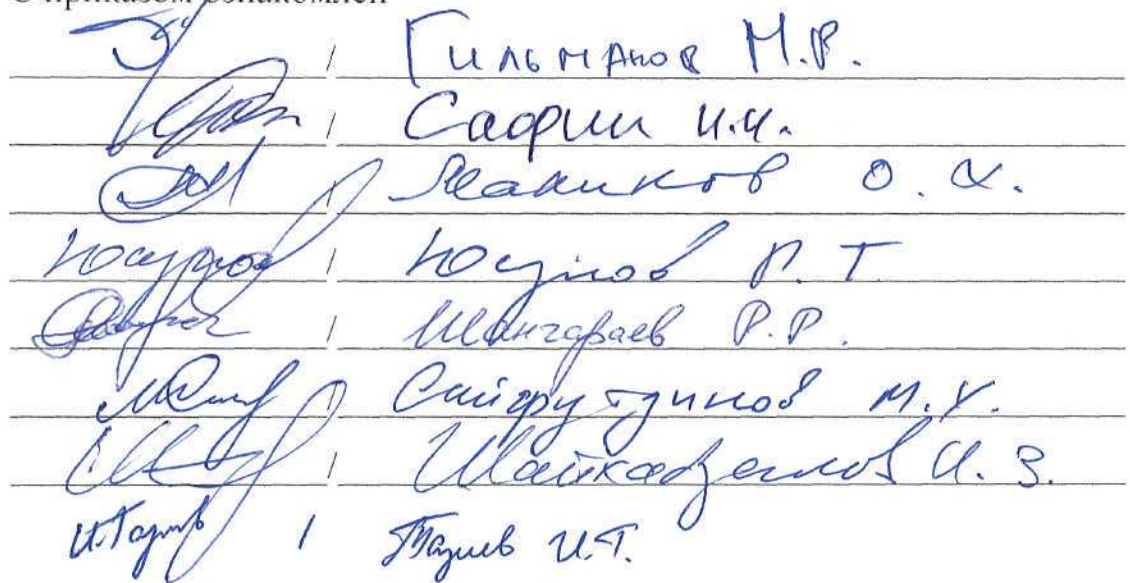 С приказом ознакомлен
/ Гильманов М.Р.
/ Сафин И.И.
/ О. Х.
Юсупов / Юсупов Р. Т.
/ Шангараев Р.Р.
/ Сайфутдинов М.Х.
/ И. З.
И.Газиев / Газиев И.Г.